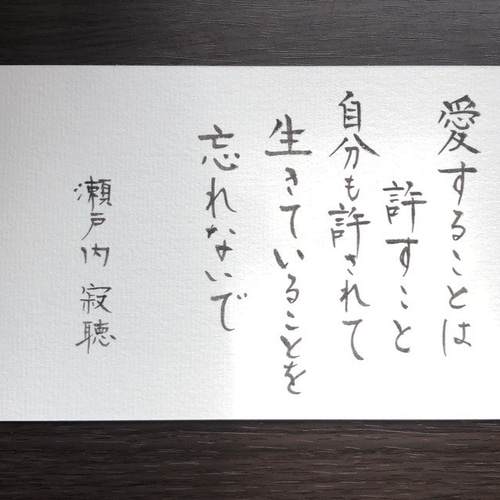 愛することは
許すこと
自分も許されて
生きていることを
忘れないで
瀬戸内 寂聴